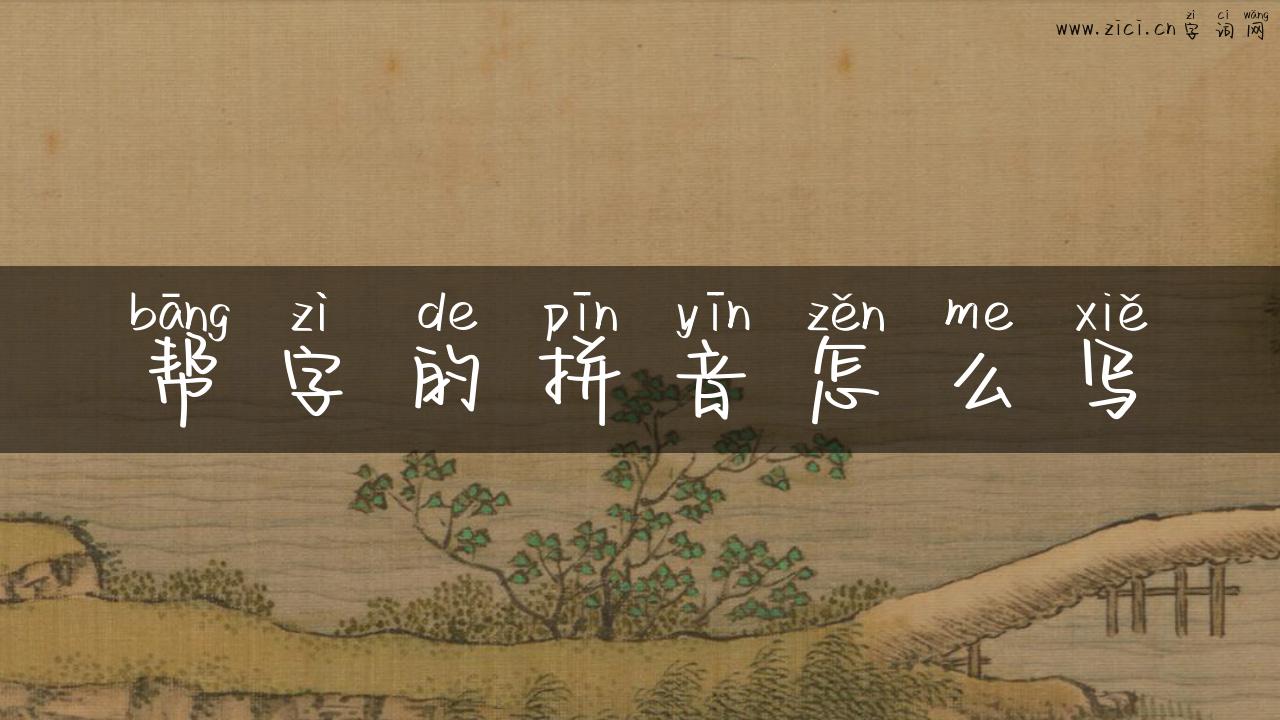 zì cí wǎng
www.zici.cn 字词网
bāng zì de pīn yīn zěn me xiě
帮字的拼音怎么写